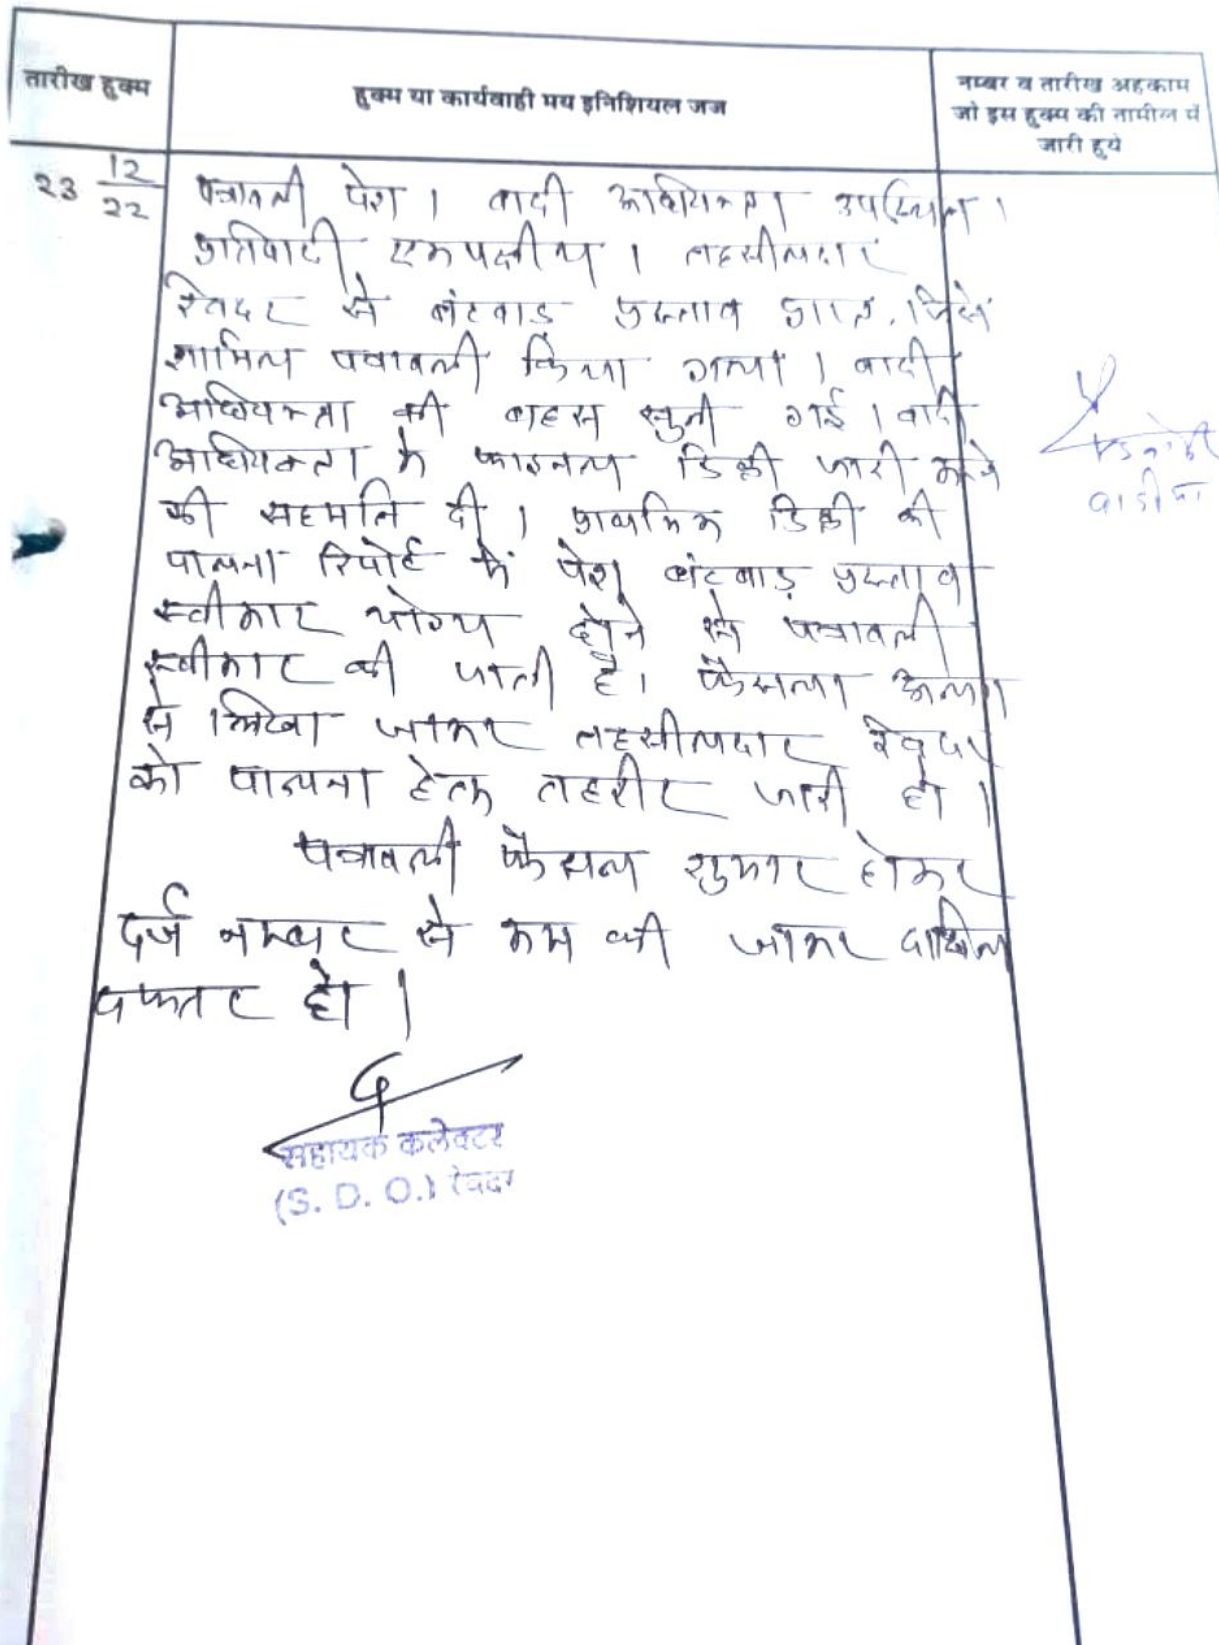 तारीख हुक्म
हुक्म या कार्यवाही मय इनिशियल जज
नम्बर व तारीख अहकाम
जो इस हुक्म की तामील में
जारी हुये
23 12/22
पत्रावली पेश । वादी अधिवक्ता उपस्थित ।
प्रतिवादी एकपक्षीय । तहसीलदार
रेवदर से बंटवाड प्रस्ताव प्राप्त, जिसे
शामिल पत्रावली किया गया । वादी
अधिवक्ता की बहस सुनी गई । वादी
अधिवक्ता ने फाइनल डिक्री जारी करने
की सहमति दी । प्राथमिक डिक्री की
पालना रिपोर्ट में पेश बंटवाड़ प्रस्ताव
स्वीकार योग्य होने से पत्रावली
स्वीकार की जाती है। फैसला अलग
से लिखा जाकर तहसीलदार रेवदर
को पालना हेतु तहरीर जारी हो ।
पत्रावली फैसल शुमार होकर
दर्ज नम्बर से कम की जाकर दाखिल
दफ्तर हो ।
सहायक कलेक्टर
(S. D. O.) रेवदर